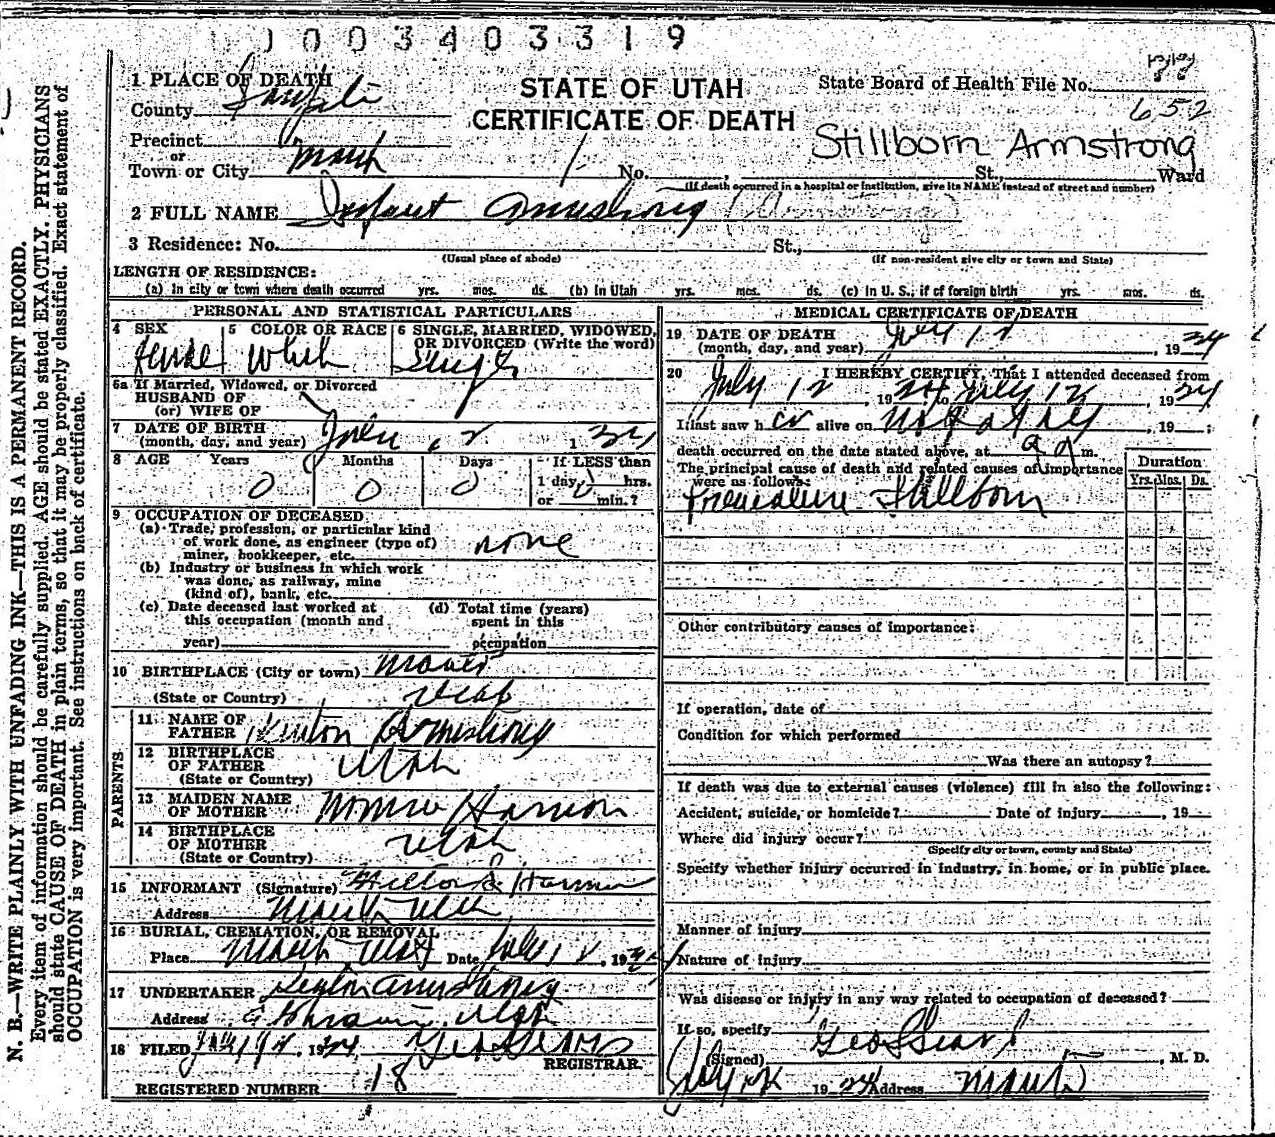 1003403319
1 PLACE OF DEATH
STATE OF UTAH
State Board of Health File No.
County
CERTIFICATE OF DEATH
652
Precinct
Stillborn Armstrong
or
Town or City No. St., Ward
(If death occurred in a hospital or institution, give its NAME instead of street and number)
2 FULL NAME Infant Armstrong
3 Residence: No. St.,
(Usual place of abode) (If non-resident give city or town and State)
LENGTH OF RESIDENCE:
(a) In city or town where death occurred yrs. mos. ds. (b) In Utah yrs. mos. ds. (c) In U. S., if of foreign birth yrs. mos. ds.
PERSONAL AND STATISTICAL PARTICULARS
4 SEX 5 COLOR OR RACE 6 SINGLE, MARRIED, WIDOWED,
OR DIVORCED (Write the word)
Female White Single
6a If Married, Widowed, or Divorced
HUSBAND OF
(or) WIFE OF
7 DATE OF BIRTH
(month, day, and year) July 12 1934
8 AGE Years Months Days If LESS than
1 day, hrs.
or min.?
0 0 0 0
9 OCCUPATION OF DECEASED
(a) Trade, profession, or particular kind
of work done, as engineer (type of)
miner, bookkeeper, etc. none
(b) Industry or business in which work
was done, as railway, mine
(kind of), bank, etc.
(c) Date deceased last worked at
this occupation (month and
year)
(d) Total time (years)
spent in this
occupation
10 BIRTHPLACE (City or town)
(State or Country) Utah
PARENTS
11 NAME OF
FATHER Armstrong
12 BIRTHPLACE
OF FATHER Utah
(State or Country)
13 MAIDEN NAME
OF MOTHER
14 BIRTHPLACE
OF MOTHER Utah
(State or Country)
15 INFORMANT (Signature)
Address Utah
16 BURIAL, CREMATION, OR REMOVAL
Place Utah Date July 12, 1934
17 UNDERTAKER Armstrong
Address Ephraim, Utah
18 FILED 1934 Geo Sears
REGISTRAR.
REGISTERED NUMBER 18
MEDICAL CERTIFICATE OF DEATH
19 DATE OF DEATH
(month, day, and year) July 12, 1934
20 I HEREBY CERTIFY, That I attended deceased from
July 12, 1934 to July 12, 1934
I last saw h er alive on, 19 ;
death occurred on the date stated above, at m.
The principal cause of death and related causes of importance
were as follows:
Duration
Yrs. Mos. Ds.
Premature Stillborn
Other contributory causes of importance:
If operation, date of
Condition for which performed
Was there an autopsy?
If death was due to external causes (violence) fill in also the following:
Accident, suicide, or homicide? Date of injury, 19
Where did injury occur?
(Specify city or town, county and State)
Specify whether injury occurred in industry, in home, or in public place.
Manner of injury
Nature of injury
Was disease or injury in any way related to occupation of deceased?
If so, specify
(Signed) Geo Sears, M. D.
July 1934 Address
N. B.—WRITE PLAINLY WITH UNFADING INK—THIS IS A PERMANENT RECORD.
Every item of information should be carefully supplied. AGE should be stated EXACTLY. PHYSICIANS
should state CAUSE OF DEATH in plain terms, so that it may be properly classified. Exact statement of
OCCUPATION is very important. See instructions on back of certificate.